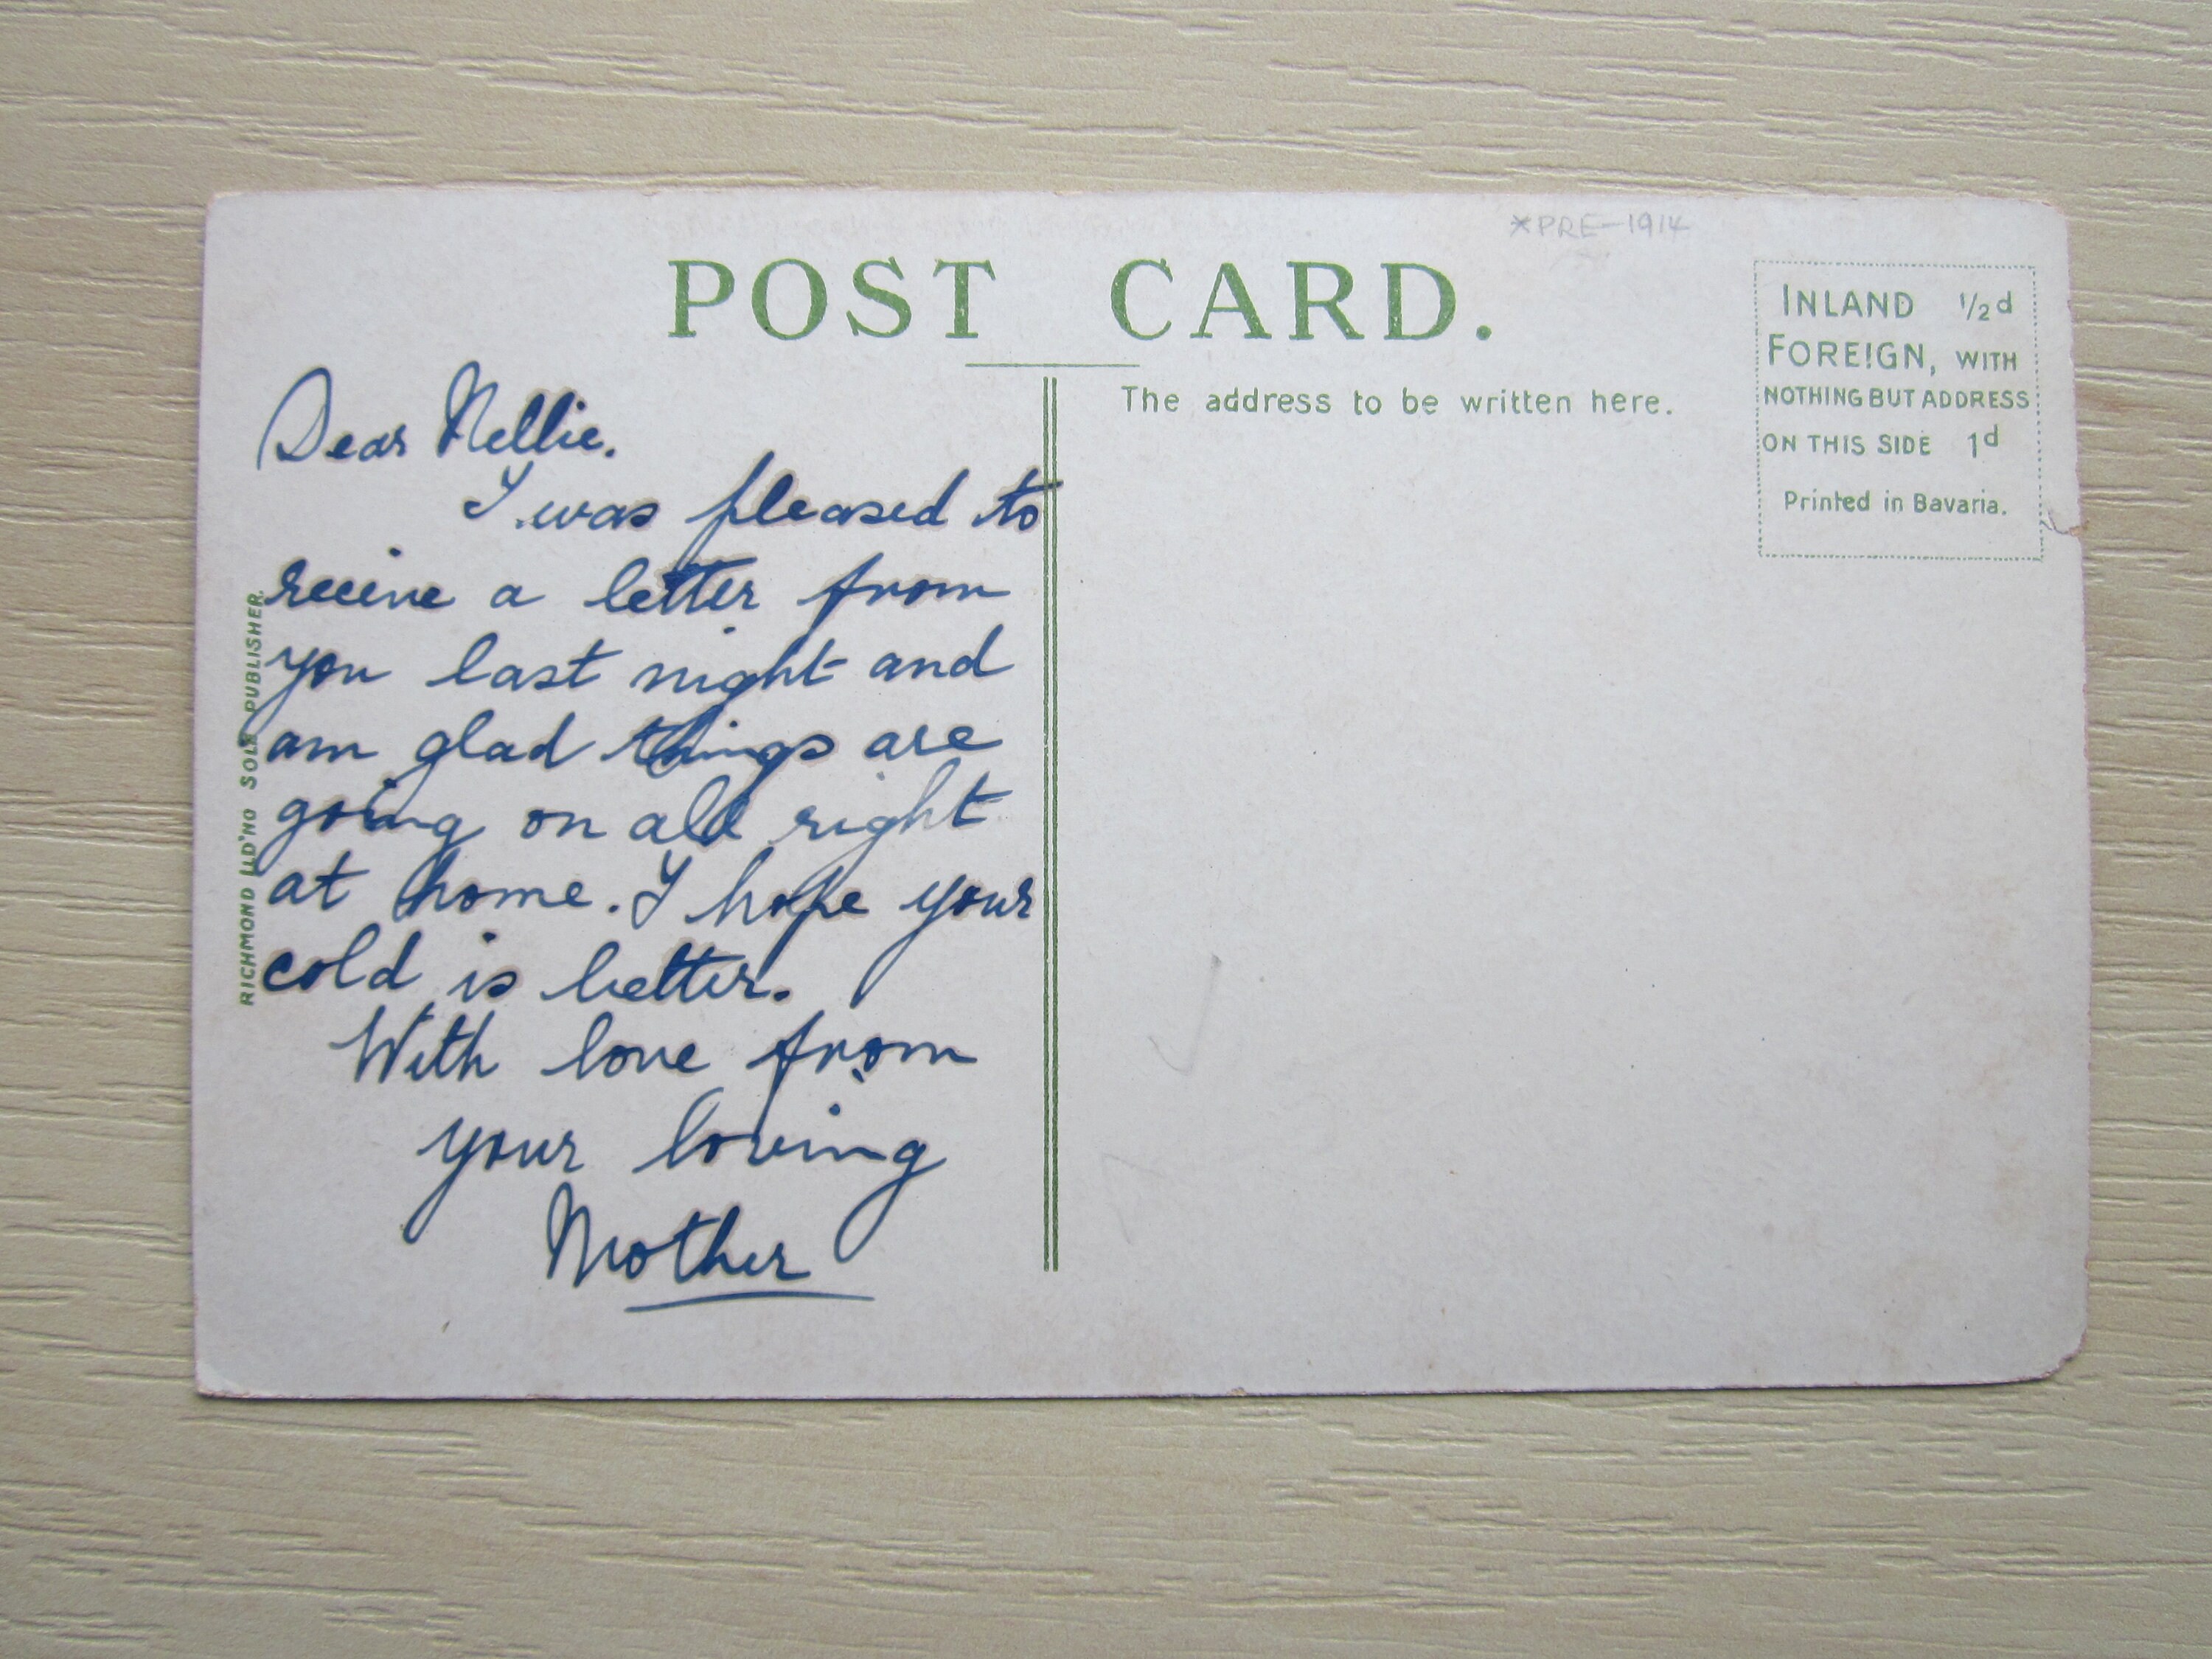 *PRE-1914
POST CARD.
INLAND 1/2d
FOREIGN, WITH
NOTHING BUT ADDRESS
ON THIS SIDE 1d
Printed in Bavaria.
The address to be written here.
Dear Nellie.
I was pleased to
receive a letter from
you last night and
am glad things are
going on all right
at home. I hope your
cold is better.
With love from
your loving
Mother
RICHMOND SOLE PUBLISHER.